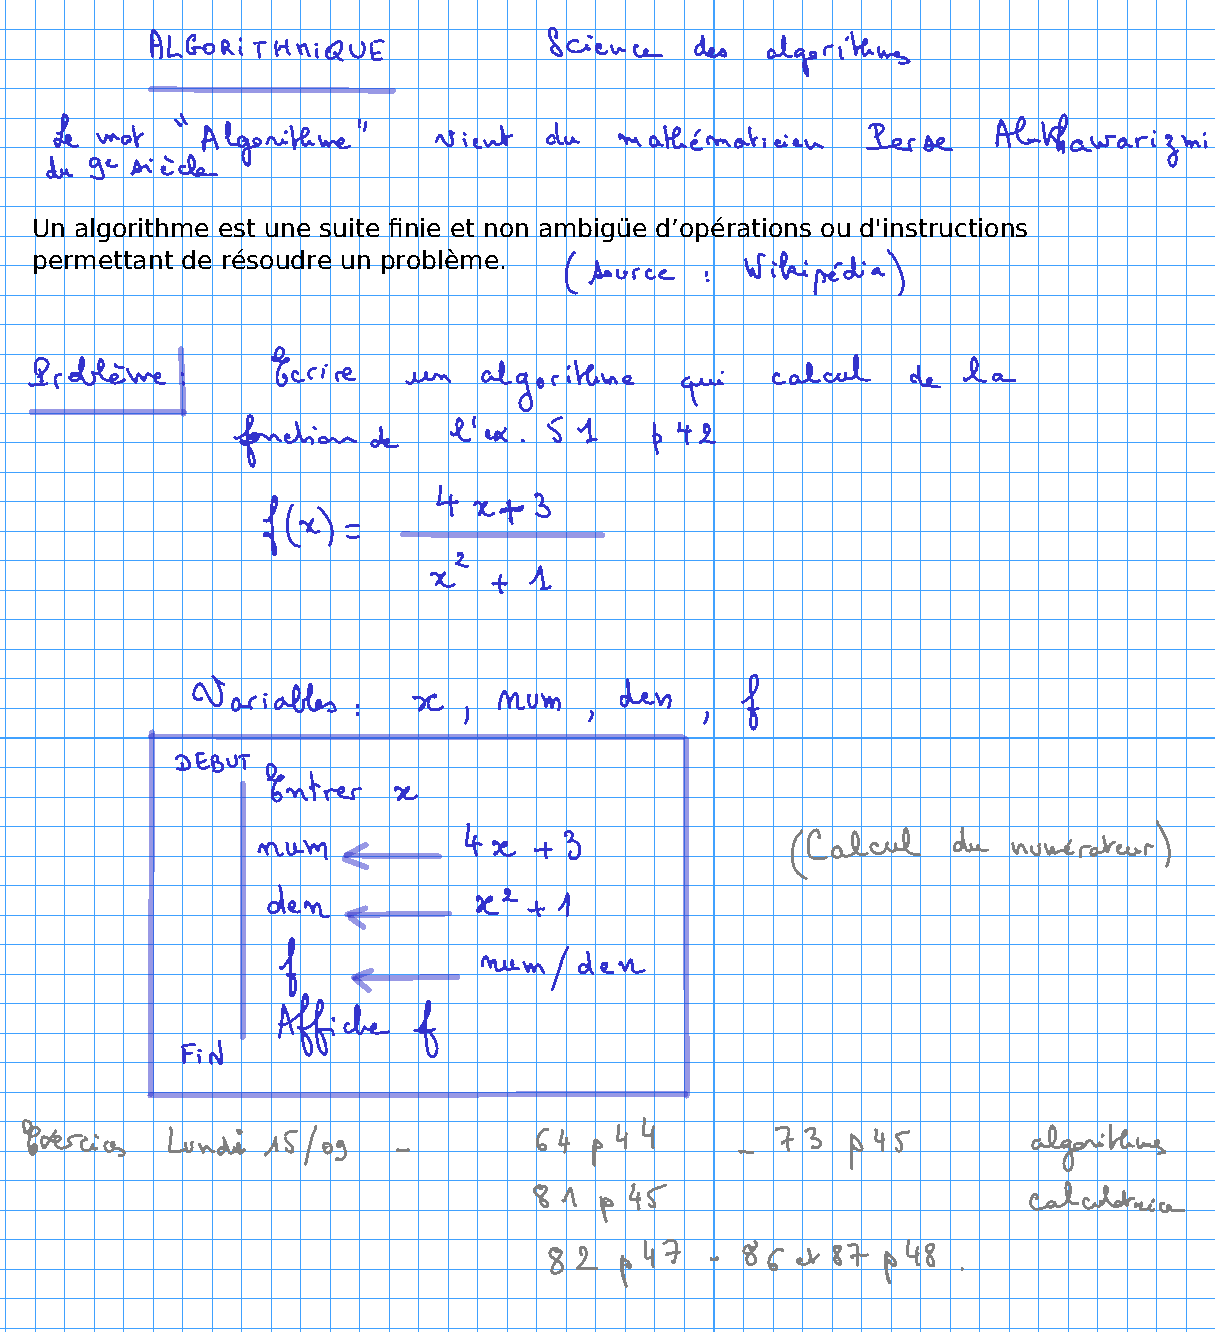 ALGORiTHMiQUE Science des algorithmes
Le mot "Algorithme" vient du mathématicien Perse Al-Khawarizmi
du 9e siècle
Un algorithme est une suite finie et non ambigüe d’opérations ou d'instructions
permettant de résoudre un problème. (source : Wikipédia)
Problème : Ecrire un algorithme qui calcul de la
fonction de l'ex. 51 p 42
f(x) = (4x+3)/(x² + 1)
Variables : x, num, den, f
DEBUT
Entrer x
num ← 4x + 3 (Calcul du numérateur)
den ← x² + 1
f ← num/den
Affiche f
FiN
Exercices Lundi 15/09 - 64 p 44 - 73 p 45 algorithmes
81 p 45 calculatrice
82 p 47 - 86 et 87 p 48.